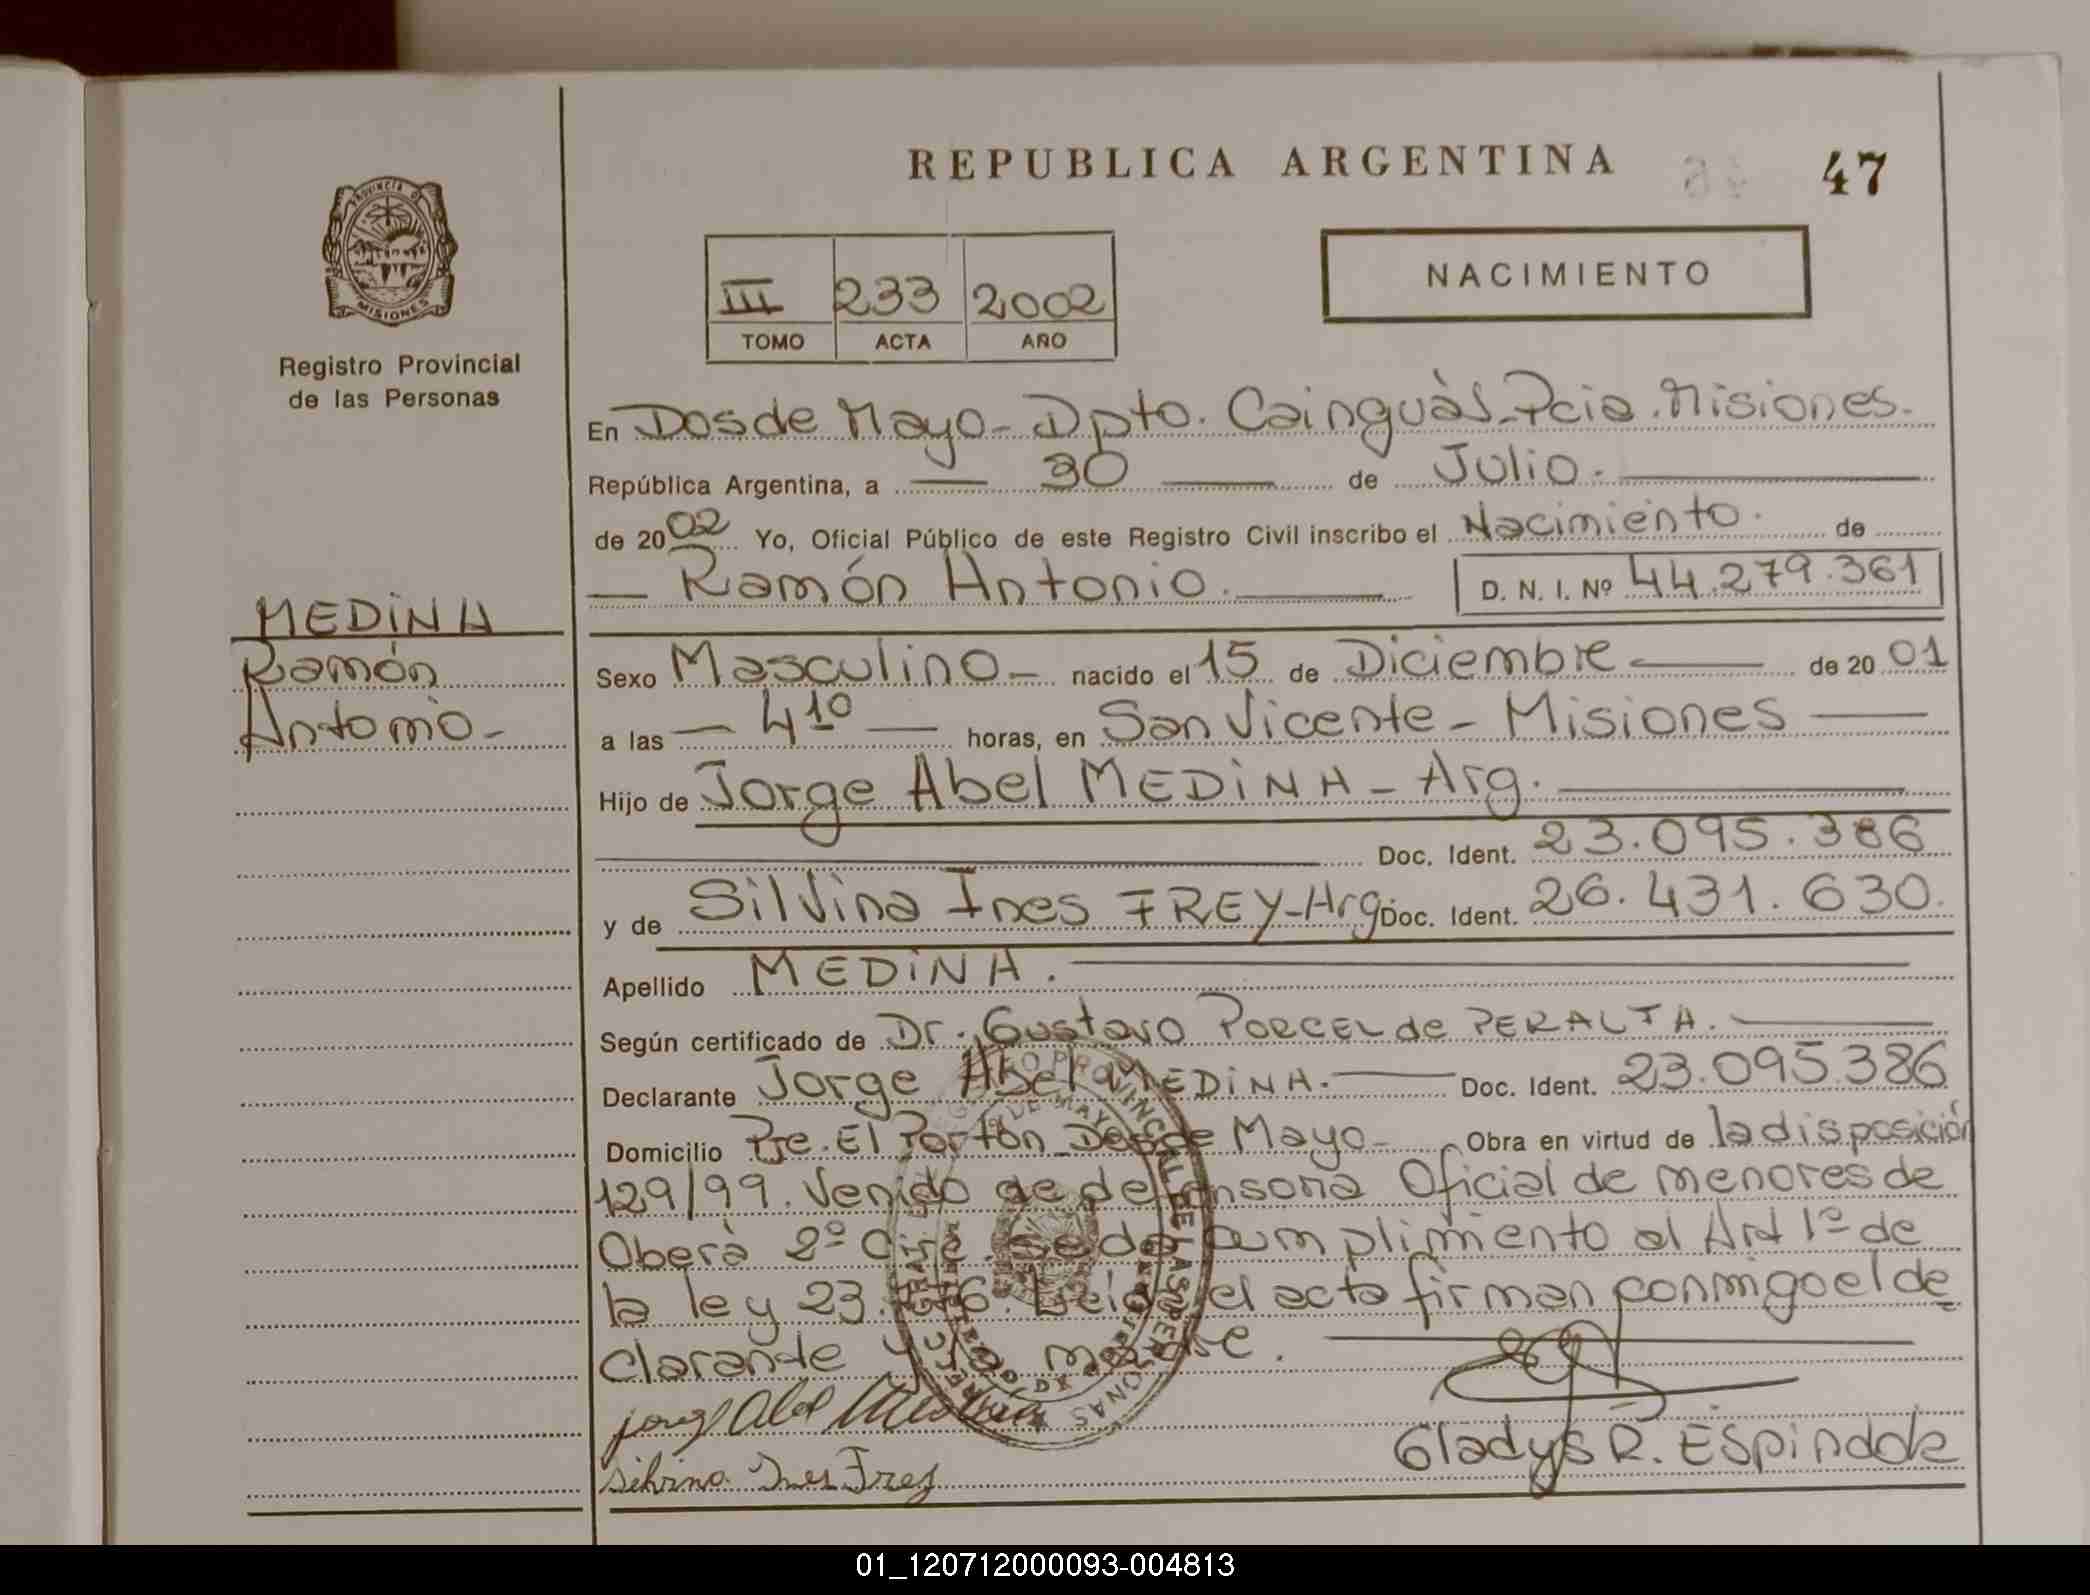 REPUBLICA ARGENTINA
47
PROVINCIA D
MISIONES
Registro Provincial
de las Personas
III 233 2002
TOMO ACTA AÑO
NACIMIENTO
En Dos de Mayo - Dpto. Cainguàs - Pcia. Misiones.
República Argentina, a — 30 — de Julio.
de 2002 Yo, Oficial Público de este Registro Civil inscribo el Nacimiento. de
— Ramón Antonio. — D. N. I. Nº 44.279.361
MEDINA
Ramón
Antonio -
Sexo Masculino - nacido el 15 de Diciembre — de 2001
a las — 4 10 — horas, en San Vicente - Misiones —
Hijo de Jorge Abel MEDINA - Arg.
Doc. Ident. 23.095.386
y de Silvina Ines FREY - Arg. Doc. Ident. 26.431.630.
Apellido MEDINA.
Según certificado de Dr. Gustavo PORCEL de PERALTA.
Declarante Jorge Abel MEDINA. Doc. Ident. 23.095.386
Domicilio Pje. El Portón Dos de Mayo - Obra en virtud de la disposición
129/99. Venido de defensoria Oficial de menores de
Oberà 2º Circ. se da cumplimiento al Art 1º de
la ley 23. Leida el acta firman conmigo el de
clarante y la madre.
Jorge Abel Medina
Silvina Ines Frey
Gladys R. Espindola
01_120712000093-004813